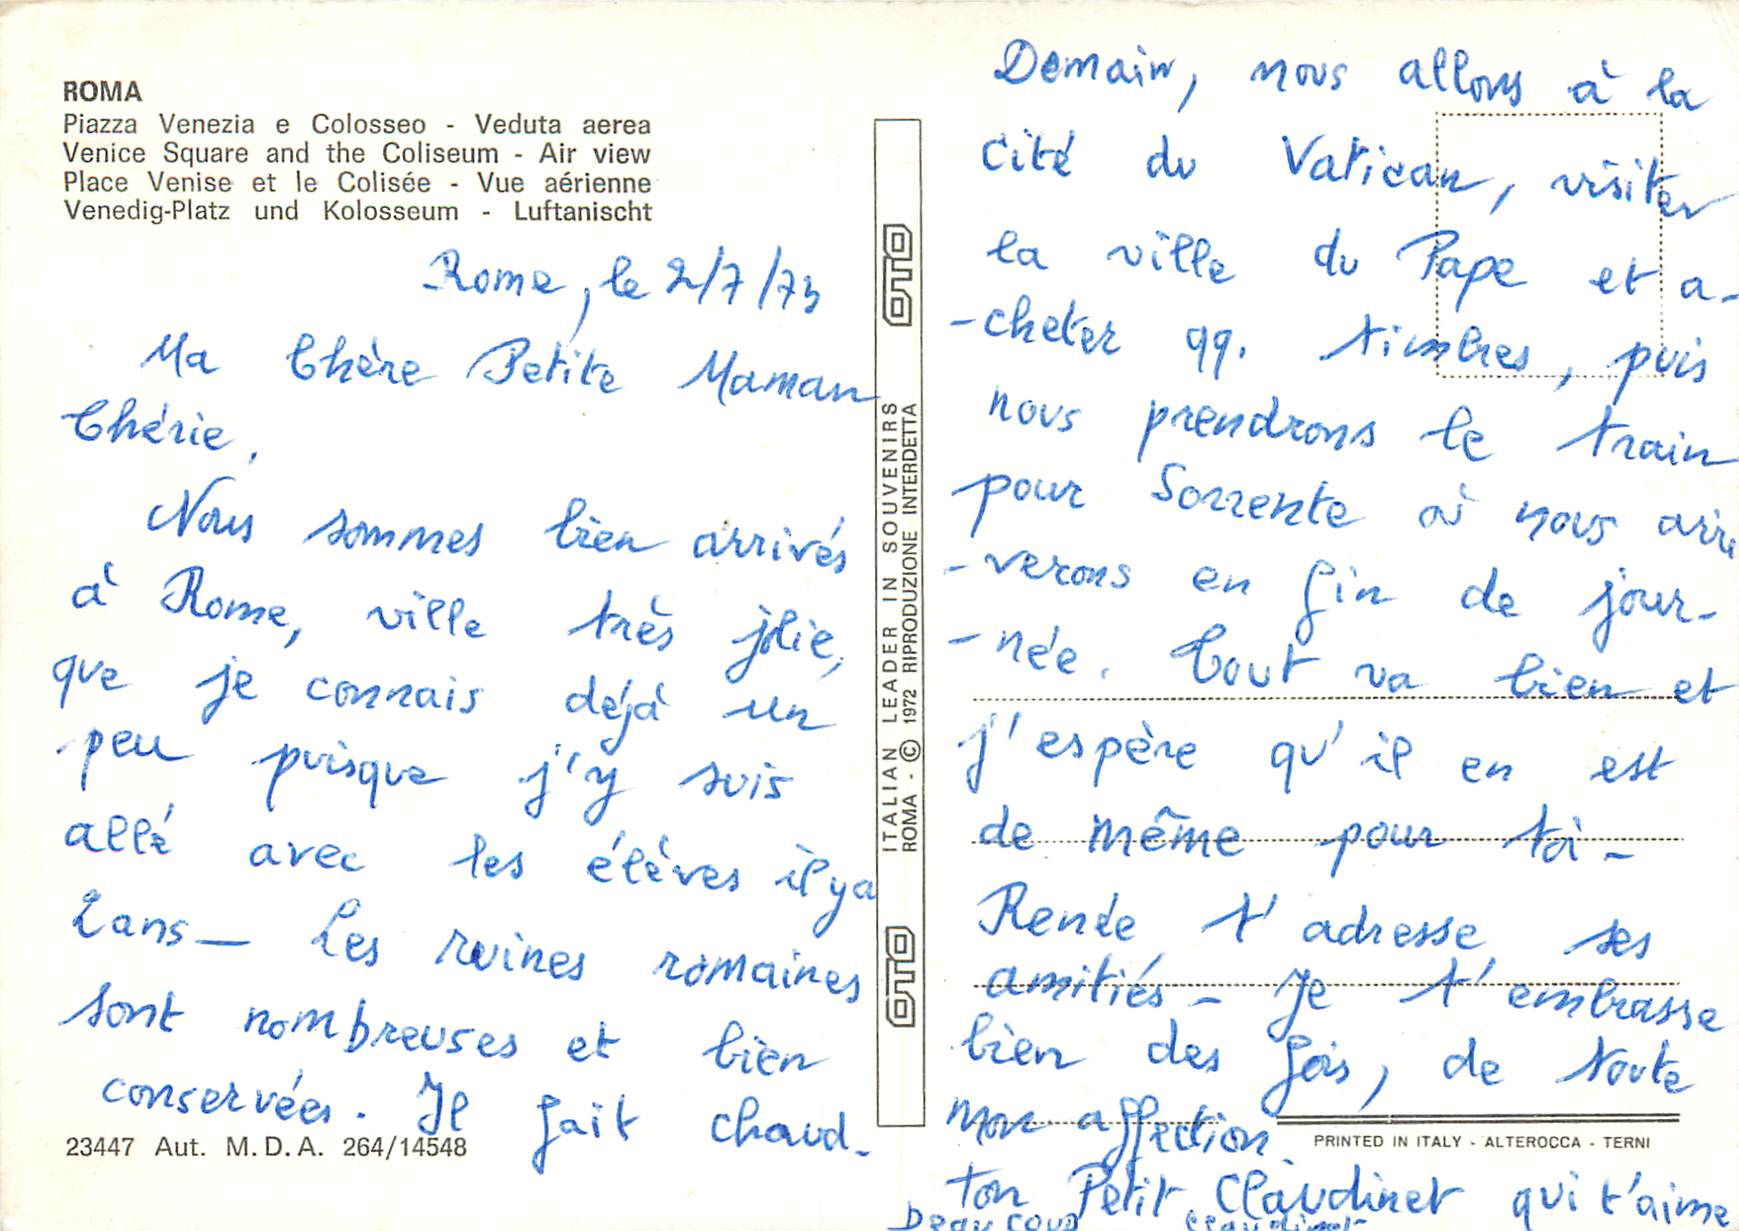 ROMA
Piazza Venezia e Colosseo - Veduta aerea
Venice Square and the Coliseum - Air view
Place Venise et le Colisée - Vue aérienne
Venedig-Platz und Kolosseum - Luftanischt
Rome, le 2/7/73
Ma Chère Petite Maman
Chérie,
Nous sommes bien arrivés
à Rome, ville très jolie,
que je connais déjà un
peu puisque j'y suis
allé avec les élèves il y a
2 ans — Les ruines romaines
sont nombreuses et bien
conservées. Il fait chaud.
23447 Aut. M.D.A. 264/14548
OTO
ITALIAN LEADER IN SOUVENIRS
ROMA - © 1972 RIPRODUZIONE INTERDETTA
OTO
Demain, nous allons à la
Cité du Vatican, visiter
la ville du Pape et a-
-cheter qq. timbres, puis
nous prendrons le train
pour Sorrente où nous arri
-verons en fin de jour-
-née. Tout va bien et
j'espère qu'il en est
de même pour toi -
Renée t'adresse ses
amitiés - Je t'embrasse
bien des fois, de toute
mon affection.
PRINTED IN ITALY - ALTEROCCA - TERNI
ton Petit Claudinet qui t'aime
beaucoup Claudinet